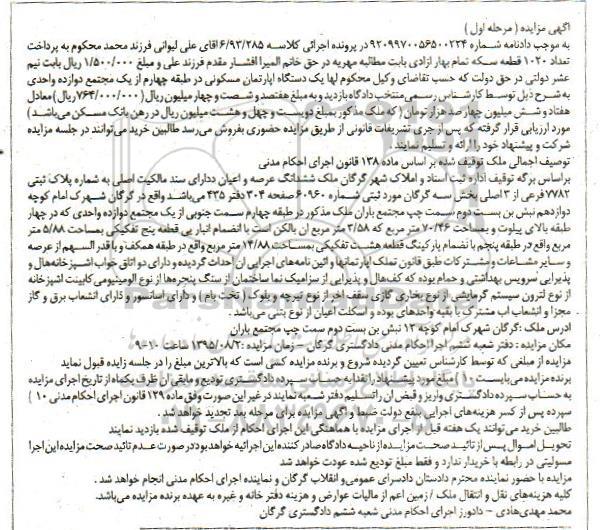 آگهی مزایده ( مرحله اول )
به موجب دادنامه شماره ۹۲۰۹۹۷۰۰۵۶۵۰۰۲۲۴ در پرونده اجرائی کلاسه ۶/۹۳/۲۸۵ اقای علی لیوانی فرزند محمد محکوم به پرداخت
تعداد ۱۰۲۰ قطعه سکه تمام بهار ازادی بابت مطالبه مهریه در حق خانم المیرا افشار مقدم فرزند علی و مبلغ ۱/۵۰۰/۰۰۰ ریال بابت نیم
عشر دولتی در حق دولت که حسب تقاضای وکیل محکوم لها یک دستگاه اپارتمان مسکونی در طبقه چهارم از یک مجتمع دوازده واحدی
به شرح ذیل توسط کارشناس رسمی منتخب دادگاه بازدید و به مبلغ هفتصد و شصت و چهار میلیون ریال (۷۶۴/۰۰۰/۰۰۰ ریال) معادل
هفتاد و شش میلیون چهارصد هزار تومان ( که ملک مذکور بمبلغ دویست و چهل و هشت میلیون ریال در رهن بانک مسکن می‌باشد)
مورد ارزیابی قرار گرفته که پس از جری تشریفات قانونی از طریق مزایده حضوری بفروش می‌رسد طالبین خرید می‌توانند در جلسه مزایده
شرکت و پیشنهاد خود را ارائه و تسلیم نمایند.
توصیف اجمالی ملک توقیف شده بر اساس ماده ۱۳۸ قانون اجرای احکام مدنی
براساس برگه توقیف اداره ثبت اسناد و املاک شهر گرگان ملک ششدانگ عرصه و اعیان ددارای سند مالکیت اصلی به شماره پلاک ثبتی
۷۷۸۲ فرعی از ۳ اصلی بخش سه گرگان مورد ثبتی شماره ۶۰۹۶۰ صفحه ۳۰۴ دفتر ۴۳۵ می‌باشد واقع در گرگان شهرک امام کوچه
دوازدهم نبش بن بست دوم سمت چپ مجتمع باران ملک مذکور در طبقه چهارم سمت جنوبی از یک مجتمع دوازده واحدی که در چهار
طبقه بالای پیلوت و بمساحت ۷۰/۴۶ متر مربع که ۳/۵۸ متر مربع ان بالکن است با انضمام انبار بی قطعه پنج تفکیکی بمساحت ۵/۸۸ متر
مربع واقع در طبقه پنجم با نضمام پارکینگ قطعه هشت تفکیکی بمساحت ۱۴/۸۸ متر مربع واقع در طبقه همکف و با قدر السهم از عرصه
و سایر مشاعات و مشترکات طبق قانون تملک اپارتمانها و ائین نامه‌های اجرایی ان احداث گردیده و دارای دو اتاق خواب اشپزخانه هال و
پذیرایی سرویس بهداشتی و حمام بوده که کف هال و پذیرایی از سرامیک نما ساختمان از سنگ پنجره‌ها از نوع الومینیومی کابینت اشپزخانه
از نوع لترون سیستم گرمایشی از نوع بخاری گازی سقف اخر از نوع تیرچه و بلوک ( تخت بام ) و دارای اسانسور و دارای انشعاب برق و گاز
مجزا و انشعاب اب مشترک با بقیه واحدهای بوده و اسکلت اعیان از نوع بتنی می‌باشد.
ادرس ملک : گرگان شهرک امام کوچه ۱۲ نبش بن بست دوم سمت چپ مجتمع باران
مکان مزایده : دفتر شعبه ششم اجرا احکام مدنی دادگستری گرگان – زمان مزایده : ۱۳۹۵/۰۸/۲ ساعات ۱۰-۹
مزایده از مبلغی که توسط کارشناس تعیین گردیده شروع و برنده مزایده کسی است که بالاترین مبلغ را در جلسه زایده قبول نماید
برنده مزایده می‌بایست ۱۰٪ مبلغ مورد پیشنهاد را نقدا به حساب سپرده دادگستری تودیع و مابقی ان ظرف یکماه از تاریخ اجرای مزایده
به حساب سپرده دادگستری واریز و قبض ان را تسلیم دفتر شعبه نمایند در غیر این صورت وفق ماده ۱۲۹ قانون اجرای احکام مدنی ۱۰٪
سپرده پس از کسر هزینه‌های اجرایی بنفع دولت ضبط و اگهی مزایده برای مرحله بعد تجدید خواهد شد.
طالبین خرید می‌توانند یک هفته قبل از اجرای مزایده با هماهنگی این اجرای احکام از ملک توقیف شده بازدید نمایند
تحویل اموال پس از تائید صحت مزایده از ناحیه دادگاه صادر کننده این اجرائیه خواهد بود و در صورت عدم تائید صحت مزایده این اجرا
مسولیتی در رابطه با خریدار ندارد و فقط مبلغ تودیع شده عودت خواهد شد
مزایده با حضور نماینده محترم دادستان دادسرای عمومی و انقلاب گرگان و نماینده اجرای احکام مدنی انجام خواهد شد .
کلیه هزینه‌های نقل و انتقال ملک / زمین اعم از مالیات عوارض و هزینه دفتر خانه و غیره به عهده برنده مزایده می‌باشد.
محمد مهدی هادی – دادورز اجرای احکام مدنی شعبه ششم دادگستری گرگان